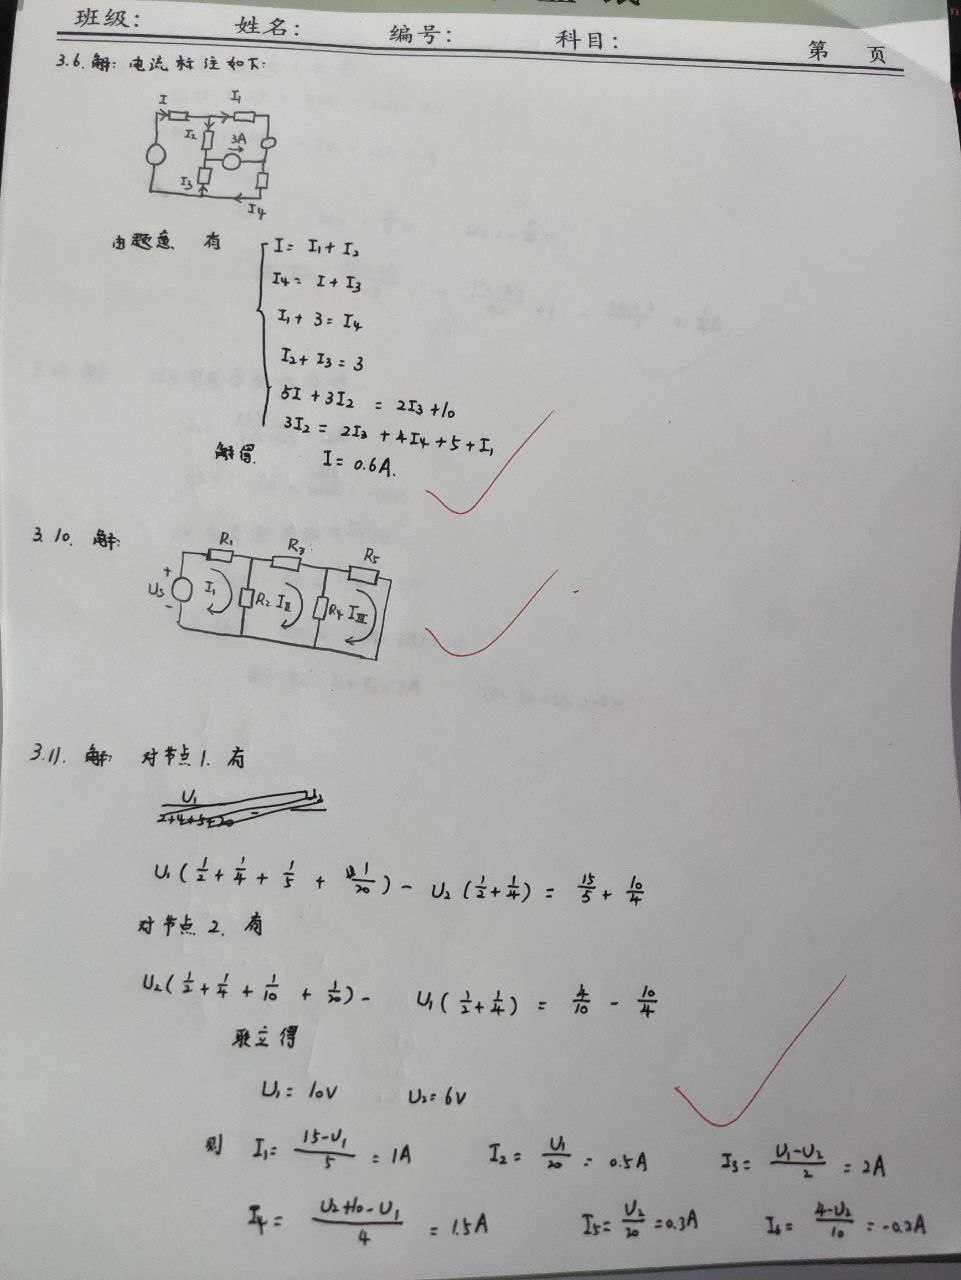 班级: 姓名: 编号: 科目: 第 页
3.6. 解: 电流标注如下:
I I₁
I₂ 3A
I₃
I₄
由题意 有
I = I₁ + I₂
I₄ = I + I₃
I₁ + 3 = I₄
I₂ + I₃ = 3
5I + 3I₂ = 2I₃ + 10
3I₂ = 2I₃ + 4I₄ + 5 + I₁
解得 I = 0.6A.
3.10. 解:
R₁ R₃ R₅
+ Us - I₁ R₂ IⅡ R₄ IⅢ
3.11. 解: 对节点1. 有
U₁(1/2 + 1/4 + 1/5 + 1/20) - U₂(1/2 + 1/4) = 15/5 + 10/4
对节点2. 有
U₂(1/2 + 1/4 + 1/10 + 1/20) - U₁(1/2 + 1/4) = 4/10 - 10/4
联立得
U₁ = 10V U₂ = 6V
则 I₁ = (15-U₁)/5 = 1A I₂ = U₁/20 = 0.5A I₃ = (U₁-U₂)/2 = 2A
I₄ = (U₂+10-U₁)/4 = 1.5A I₅ = U₂/20 = 0.3A I₆ = (4-U₂)/10 = -0.2A